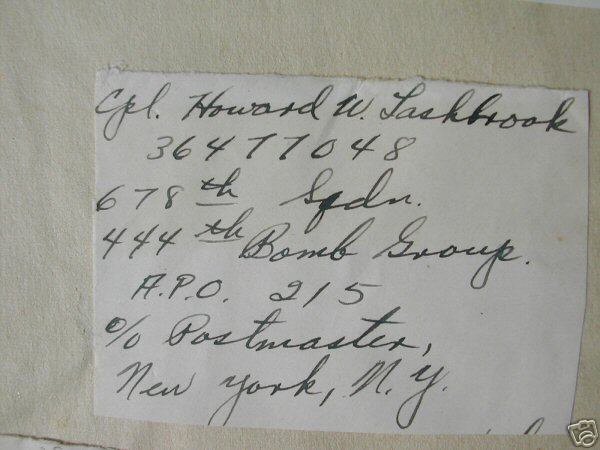 Cpl. Howard W. Lashbrook
36477048
678th Sqdn.
444th Bomb Group.
A.P.O. 215
c/o Postmaster,
New York, N.Y.